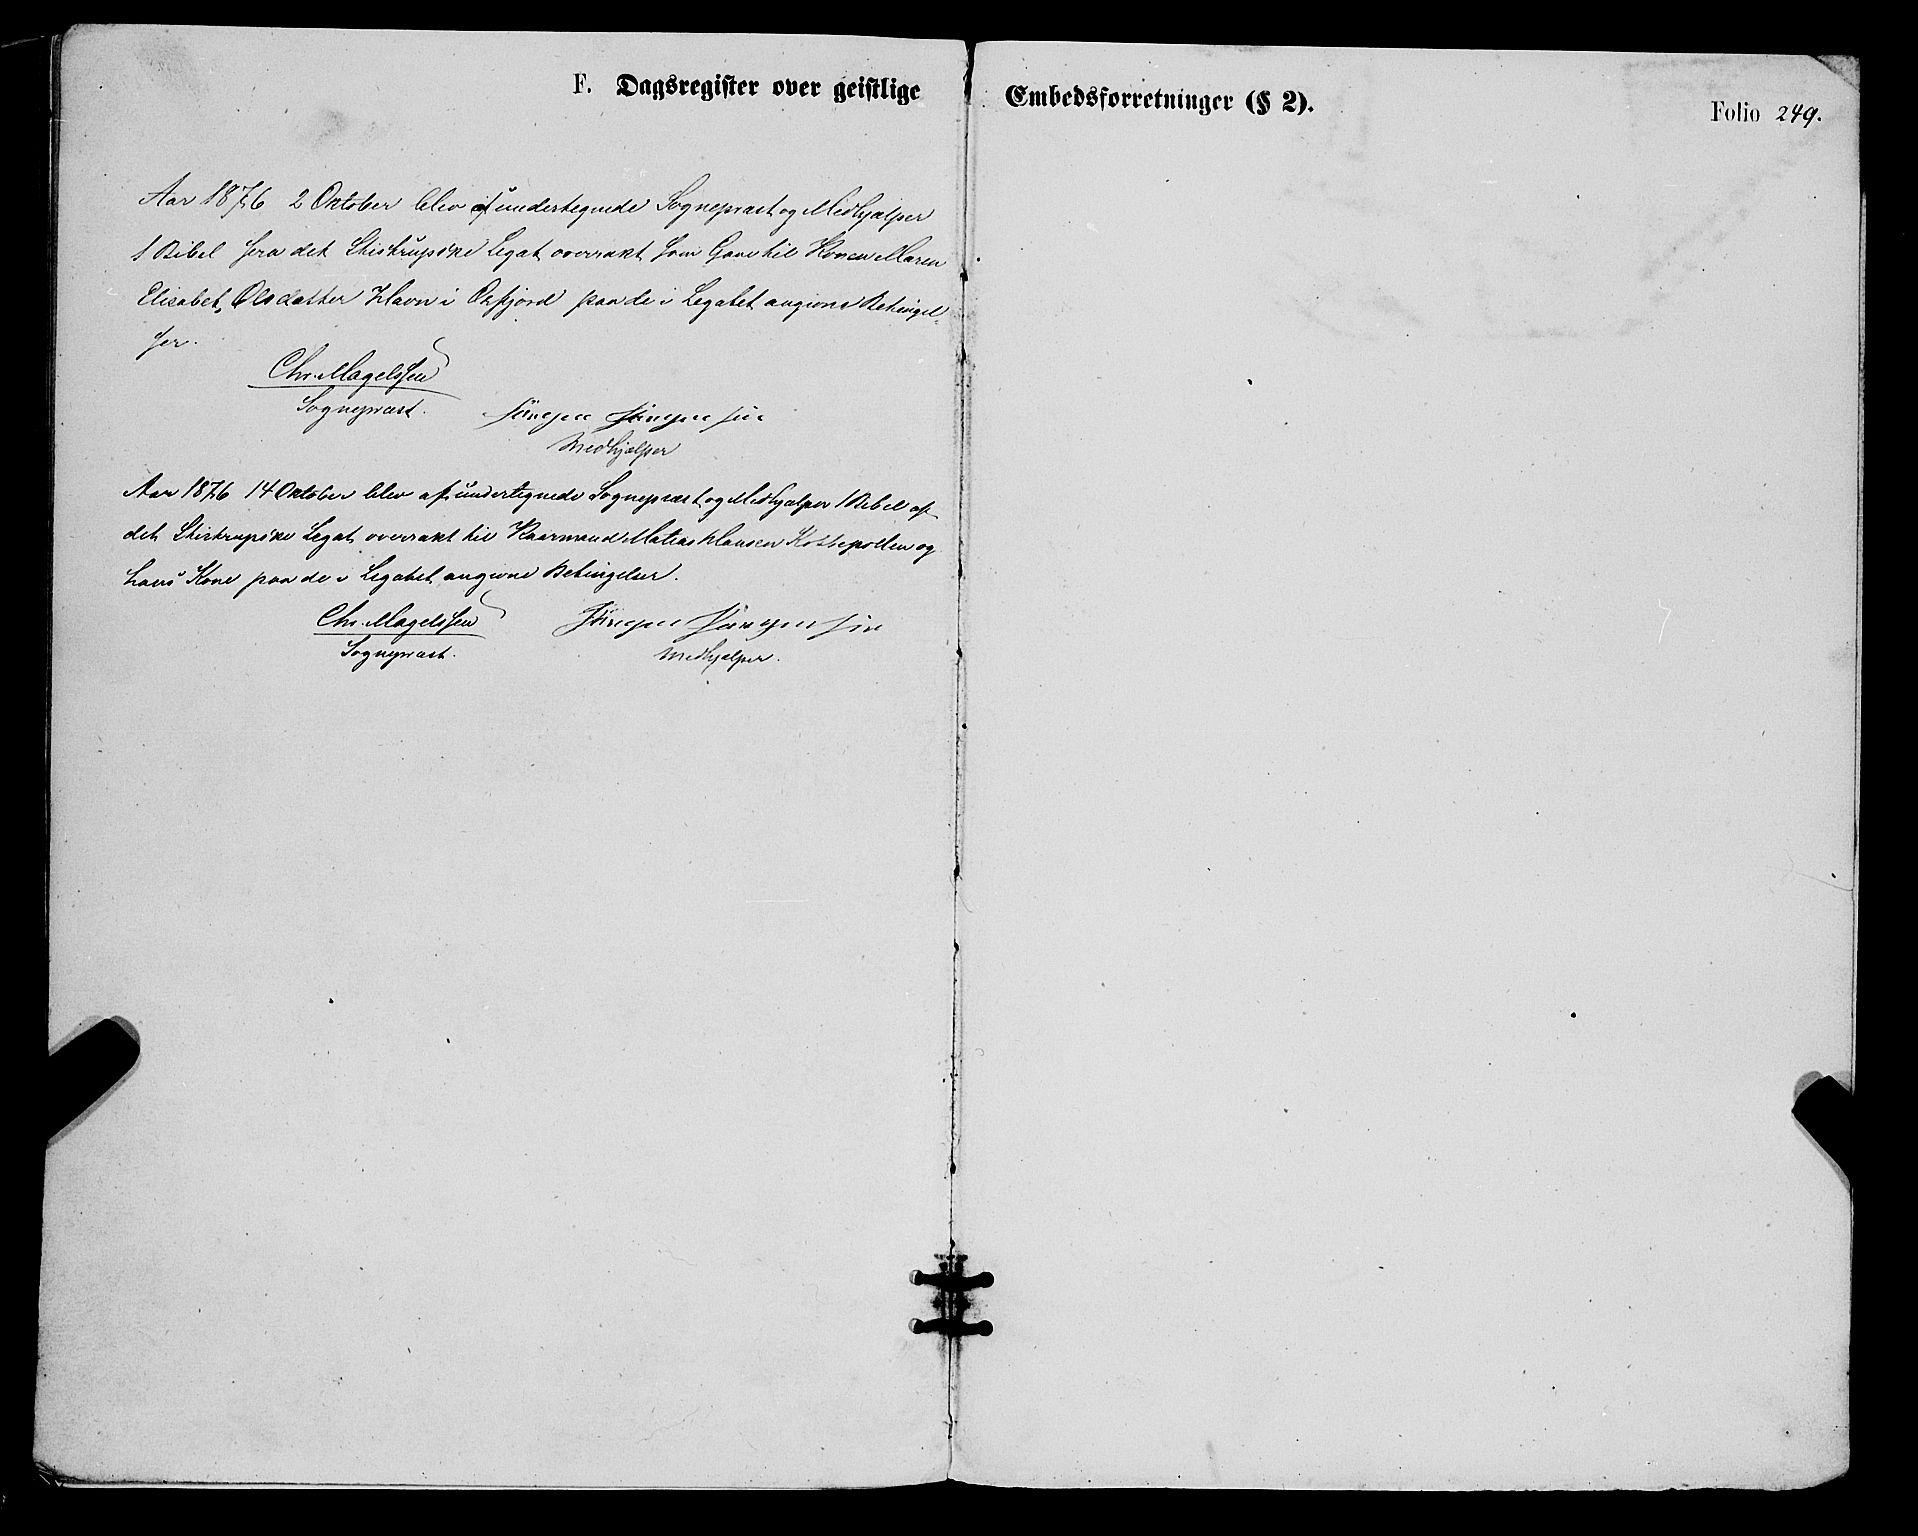 F. Dagsregister over geistlige Embedsforretninger (§ 2).
Folio 249.
Aar 1876 2 Oktober blev af undertegnede Sognepræst og Medhjælper
1 Bibel fra det Skistrupske Legat overrakt som Gave til Konen Maren
Elisabet Olsdatter Havn i Oxfjord paa de i Legatet angivne Betingel-
ser.
Chr. Magelssen
Sognepræst.
Jørgen Jørgensen
Medhjælper
Aar 1876 14 Oktober blev af undertegnede Sognepræst og Medhjælper 1 Bibel af
det Skistrupske Legat overrakt til Kaarmand Matias Hansen og
hans Kone paa de i Legatet angivne Betingelser.
Chr. Magelssen
Sognepræst.
Jørgen Jørgensen
Medhjælper.